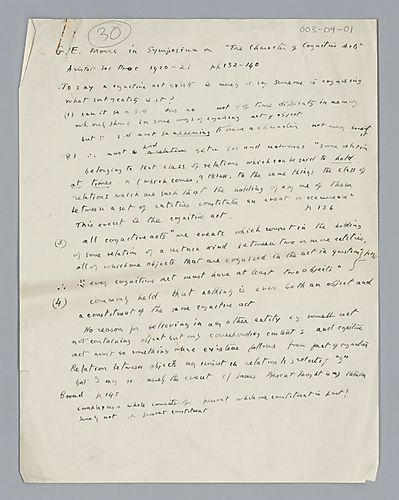 003-09-01
30
G.E. Moore in Symposium on "The Character of Cognitive Acts"
Aristot Soc Proc 1920-21 pp 132-140
To say a cognitive act exists is merely to say someone is cognising
what sort of entity is it?
(1) can it be a S.D.
only shows in some ways of cognising act & object
but S.D. must be appearing to have a character not merely
2) ∴ must be a relation between S.D. and universal "some relation
belonging to that class of relations which can be said to hold
at times or (which comes, I think, to the same thing) the class of
relations which are such that the holding of any one of them
between a set of entities constitutes an event or occurrence"
This event is the cognitive act. p 136
(3) all cognitive acts "are events which consist in the holding
of some relation of a certain kind between two or more entities,
all of whose objects that are cognised in the act in question"
∴ every cognitive act must have at least two objects"
(4) commonly held that nothing is ever both an object and
a constituent of the same cognitive act
No reason for believing in any other entity eg mental act
not containing object but only corresponding content: and cognitive
act must be something whose existence follows from part of cognition
Relation between objects may consist in relation to something "y"
but "I" may be merely the event c/f James Present thought is only thinker
Broad p 145
complex as a whole consists of present while one constituent is past?
Surely not ∴ present constituent.